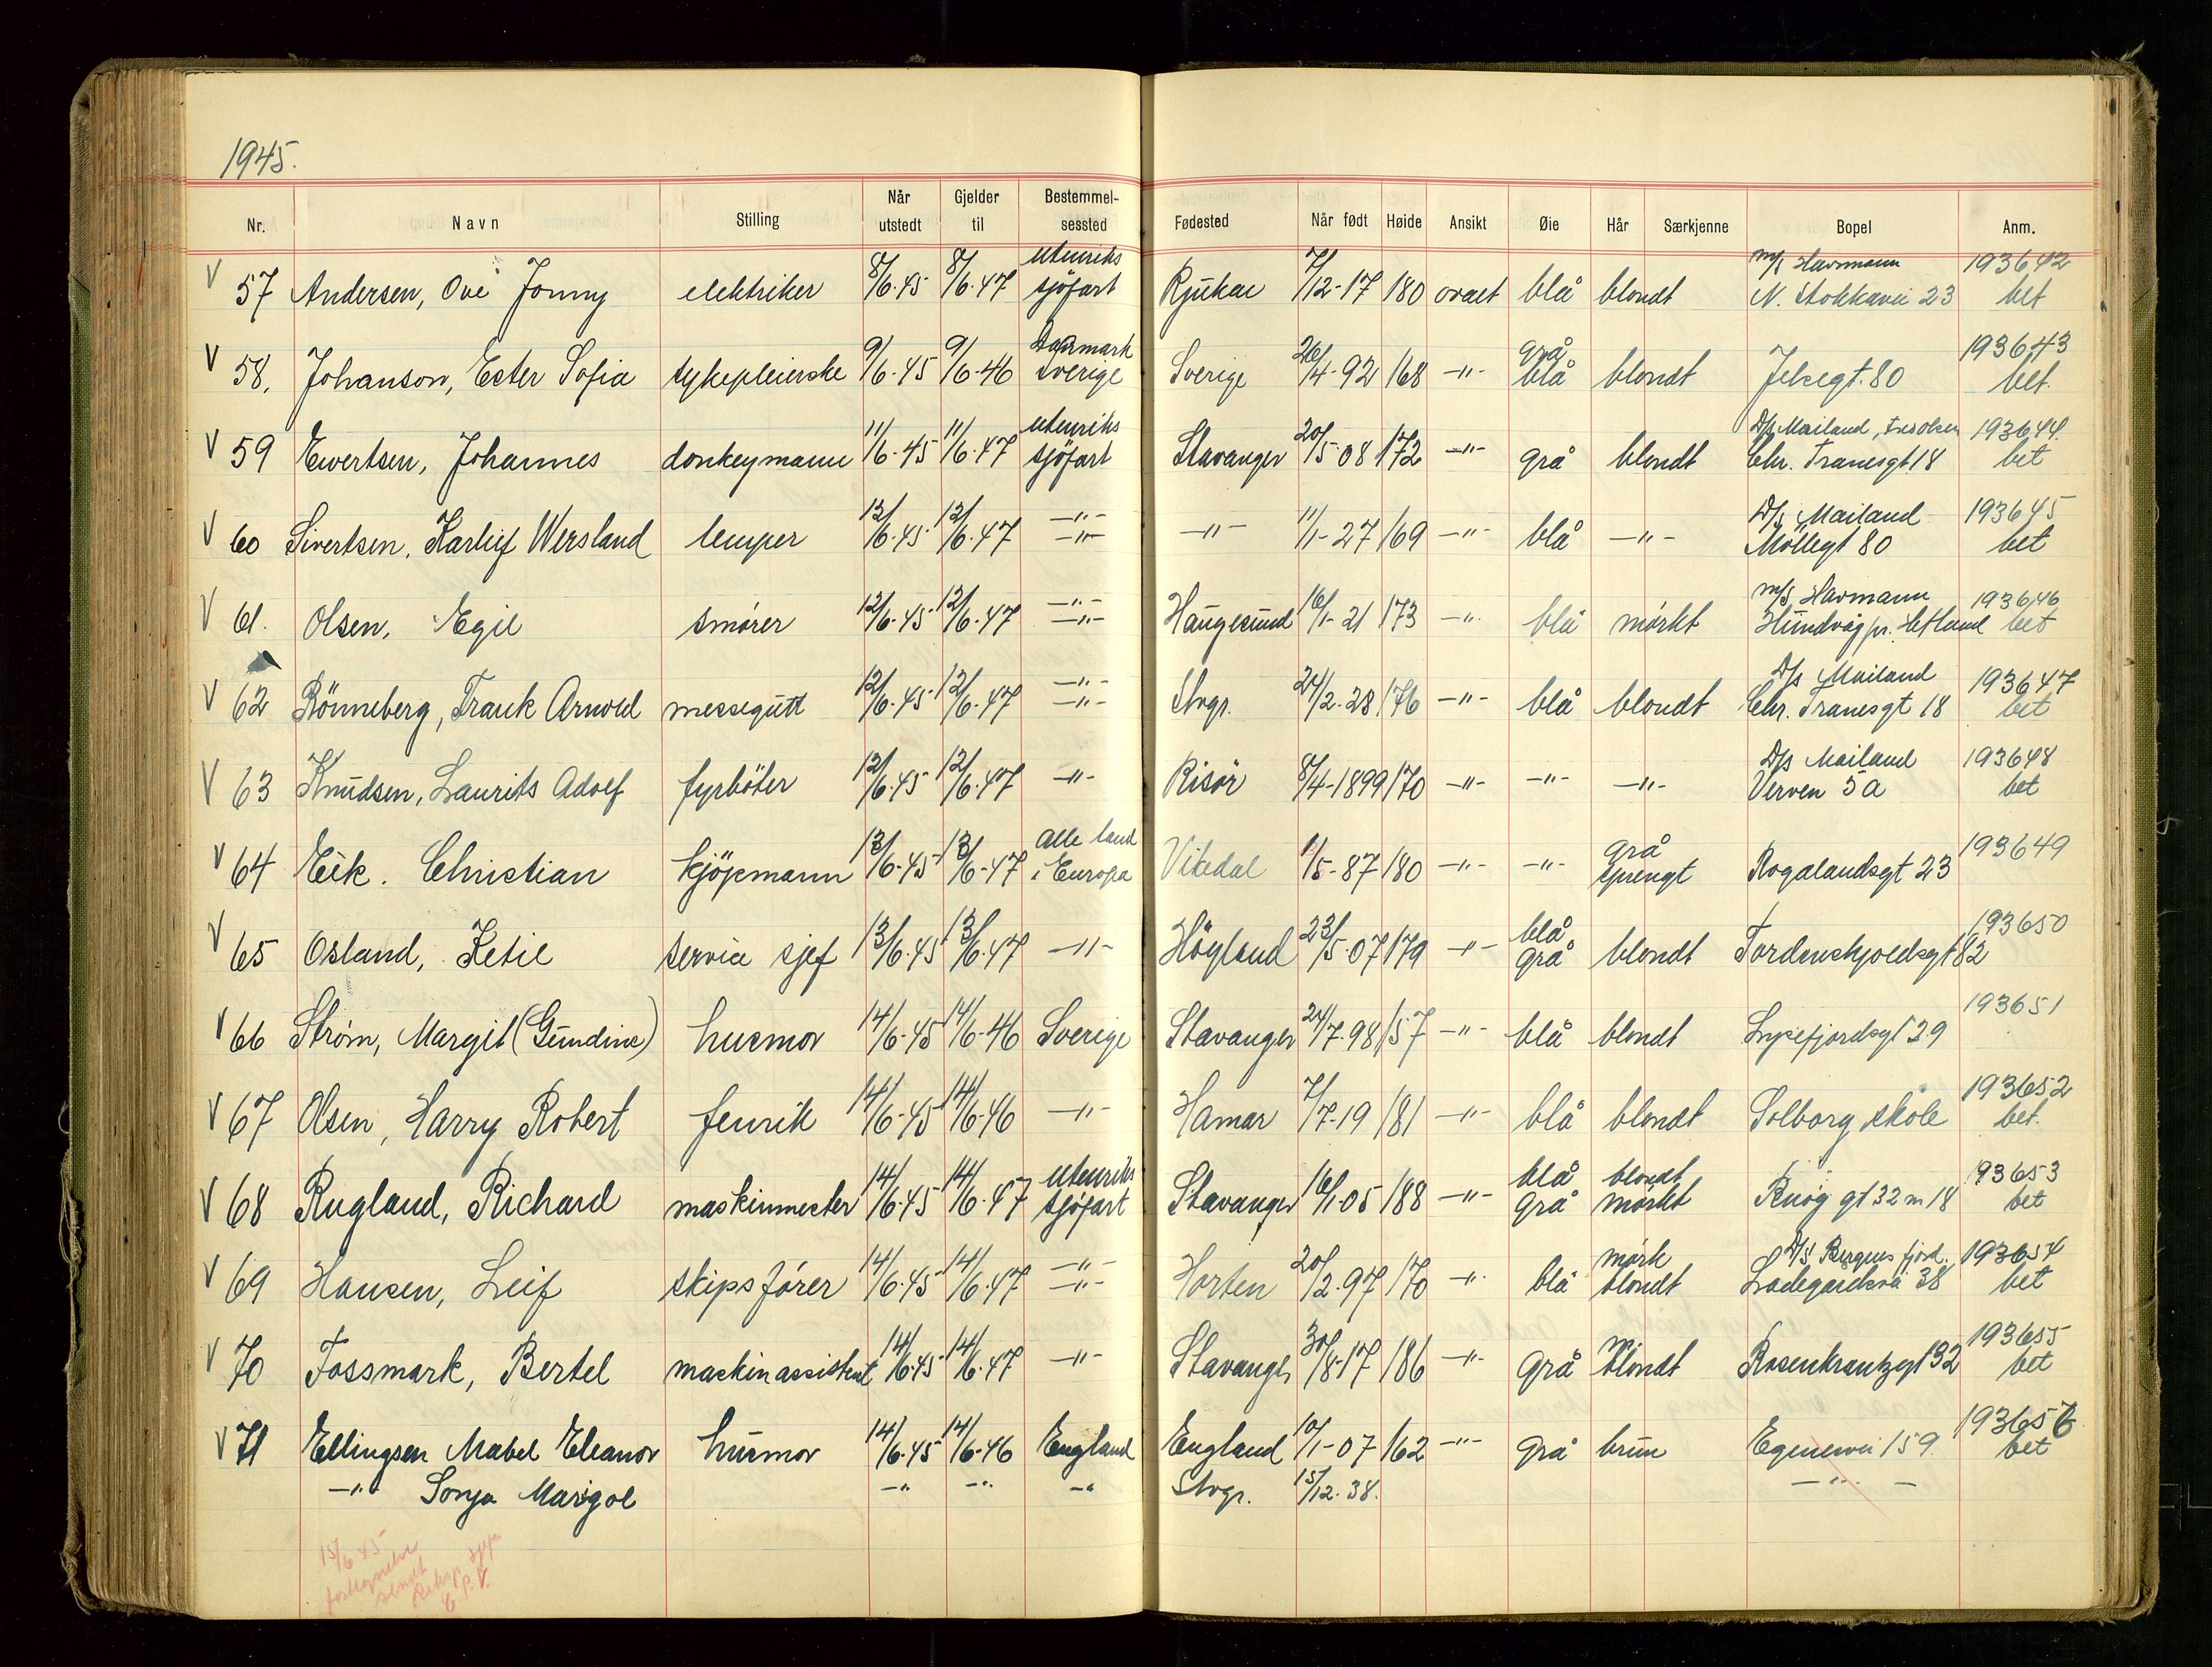 1945.
Nr. Navn Stilling Når utstedt Gjelder til Bestemmel-sessted Fødested Når født Høide Ansikt Øie Hår Særkjenne Bopel Anm.
utenriks m/s Havmann 193642
V 57 Andersen, Ove Jonny elektriker 8/6.45 8/6.47 sjöfart Rjukan 7/12-17 180 ovalt blå blondt N. Stokkavei 23 bet
Danmark grå 193643
V 58. Johanson, Ester Sofia sykepleierske 9/6.45 9/6.46 Sverige Sverige 26/4-92 168 -"- blå blondt Jelsegt. 80 bet.
utenriks D/s Mailand, Fred Olsen 193644.
V 59 Ewertsen, Johannes donkeymann 11/6.45 11/6.47 sjöfart Stavanger 20/5-08 172 -"- grå blondt Chr. Tranesgt. 18 bet
-"- D/s Mailand 193645
V 60 Sivertsen, Karleif Wersland lemper 12/6.45 12/6.47 -"- -"- 11/1-27 169 -"- blå -"- Möllegt 80 bet
-"- m/s Havmann 193646
V 61. Olsen, Egil smører 12/6.45 12/6.47 -"- Haugesund 16/1-21 173 -"- blå mørkt Hundvåg pr. Hetland bet
-"- D/s Mailand 193647
V 62 Rönneberg, Frank Arnold messegutt 12/6.45 12/6.47 -"- Stvgr. 24/2.28 176 -"- blå blondt Chr. Tranesgt 18 bet
D/s Mailand 193648
V 63 Knudsen, Laurits Adolf fyrböter 12/6.45 12/6.47 -"- Risör 8/4-1899 170 -"- -"- -"- Verven 5a bet
alle land grå 193649
V 64 Eik. Christian kjöpmann 13/6-45 13/6-47 i Europa Vikedal 1/5-87 180 -"- -"- sprengt Rogalandsgt 23
blå 193650
V 65 Osland, Ketil service sjef 13/6.45 13/6.47 -"- Höyland 23/5-07 179 -"- grå blondt Tordenskjoldsgt 82
193651
V 66 Strøm, Margit (Gundine) husmor 14/6-45 14/6-46 Sverige Stavanger 24/7.98 157 -"- blå blondt Lysefjordsgt 39
193652
V 67 Olsen, Harry Robert fenrik 14/6-45 14/6.46 -"- Hamar 7/7-19 181 -"- blå blondt Solborg skole bet.
utenriks blå blondt 193653
V 68 Rugland, Richard maskinmester 14/6.45 14/6.47 sjöfart Stavanger 16/1-05 188 -"- grå mørkt gt 32 18 bet
-"- mörk D/S Bergensfjord. 193654
V 69 Hansen, Leif skipsfører 14/6.45 14/6.47 -"- Horten 20/2.97 170 -"- blå blondt Ladegårdsvei 38 bet
193655
V 70 Fossmark, Bertel maskinassistent 14/6.45 14/6.47 -"- Stavanger 30/8-17 186 -"- grå blondt Rosenkrantzgt 32 bet
193656
V 71 Ellingsen Mabel Eleanor husmor 14/6.45 14/6-46 England England 10/1-07 162 -"- grå brun Eganesvei 159. bet
-"- Sonja Marigol -"- -"- -"- Stvgr. 15/12.38. -"-
15/6 45
fortegnelse
sendt